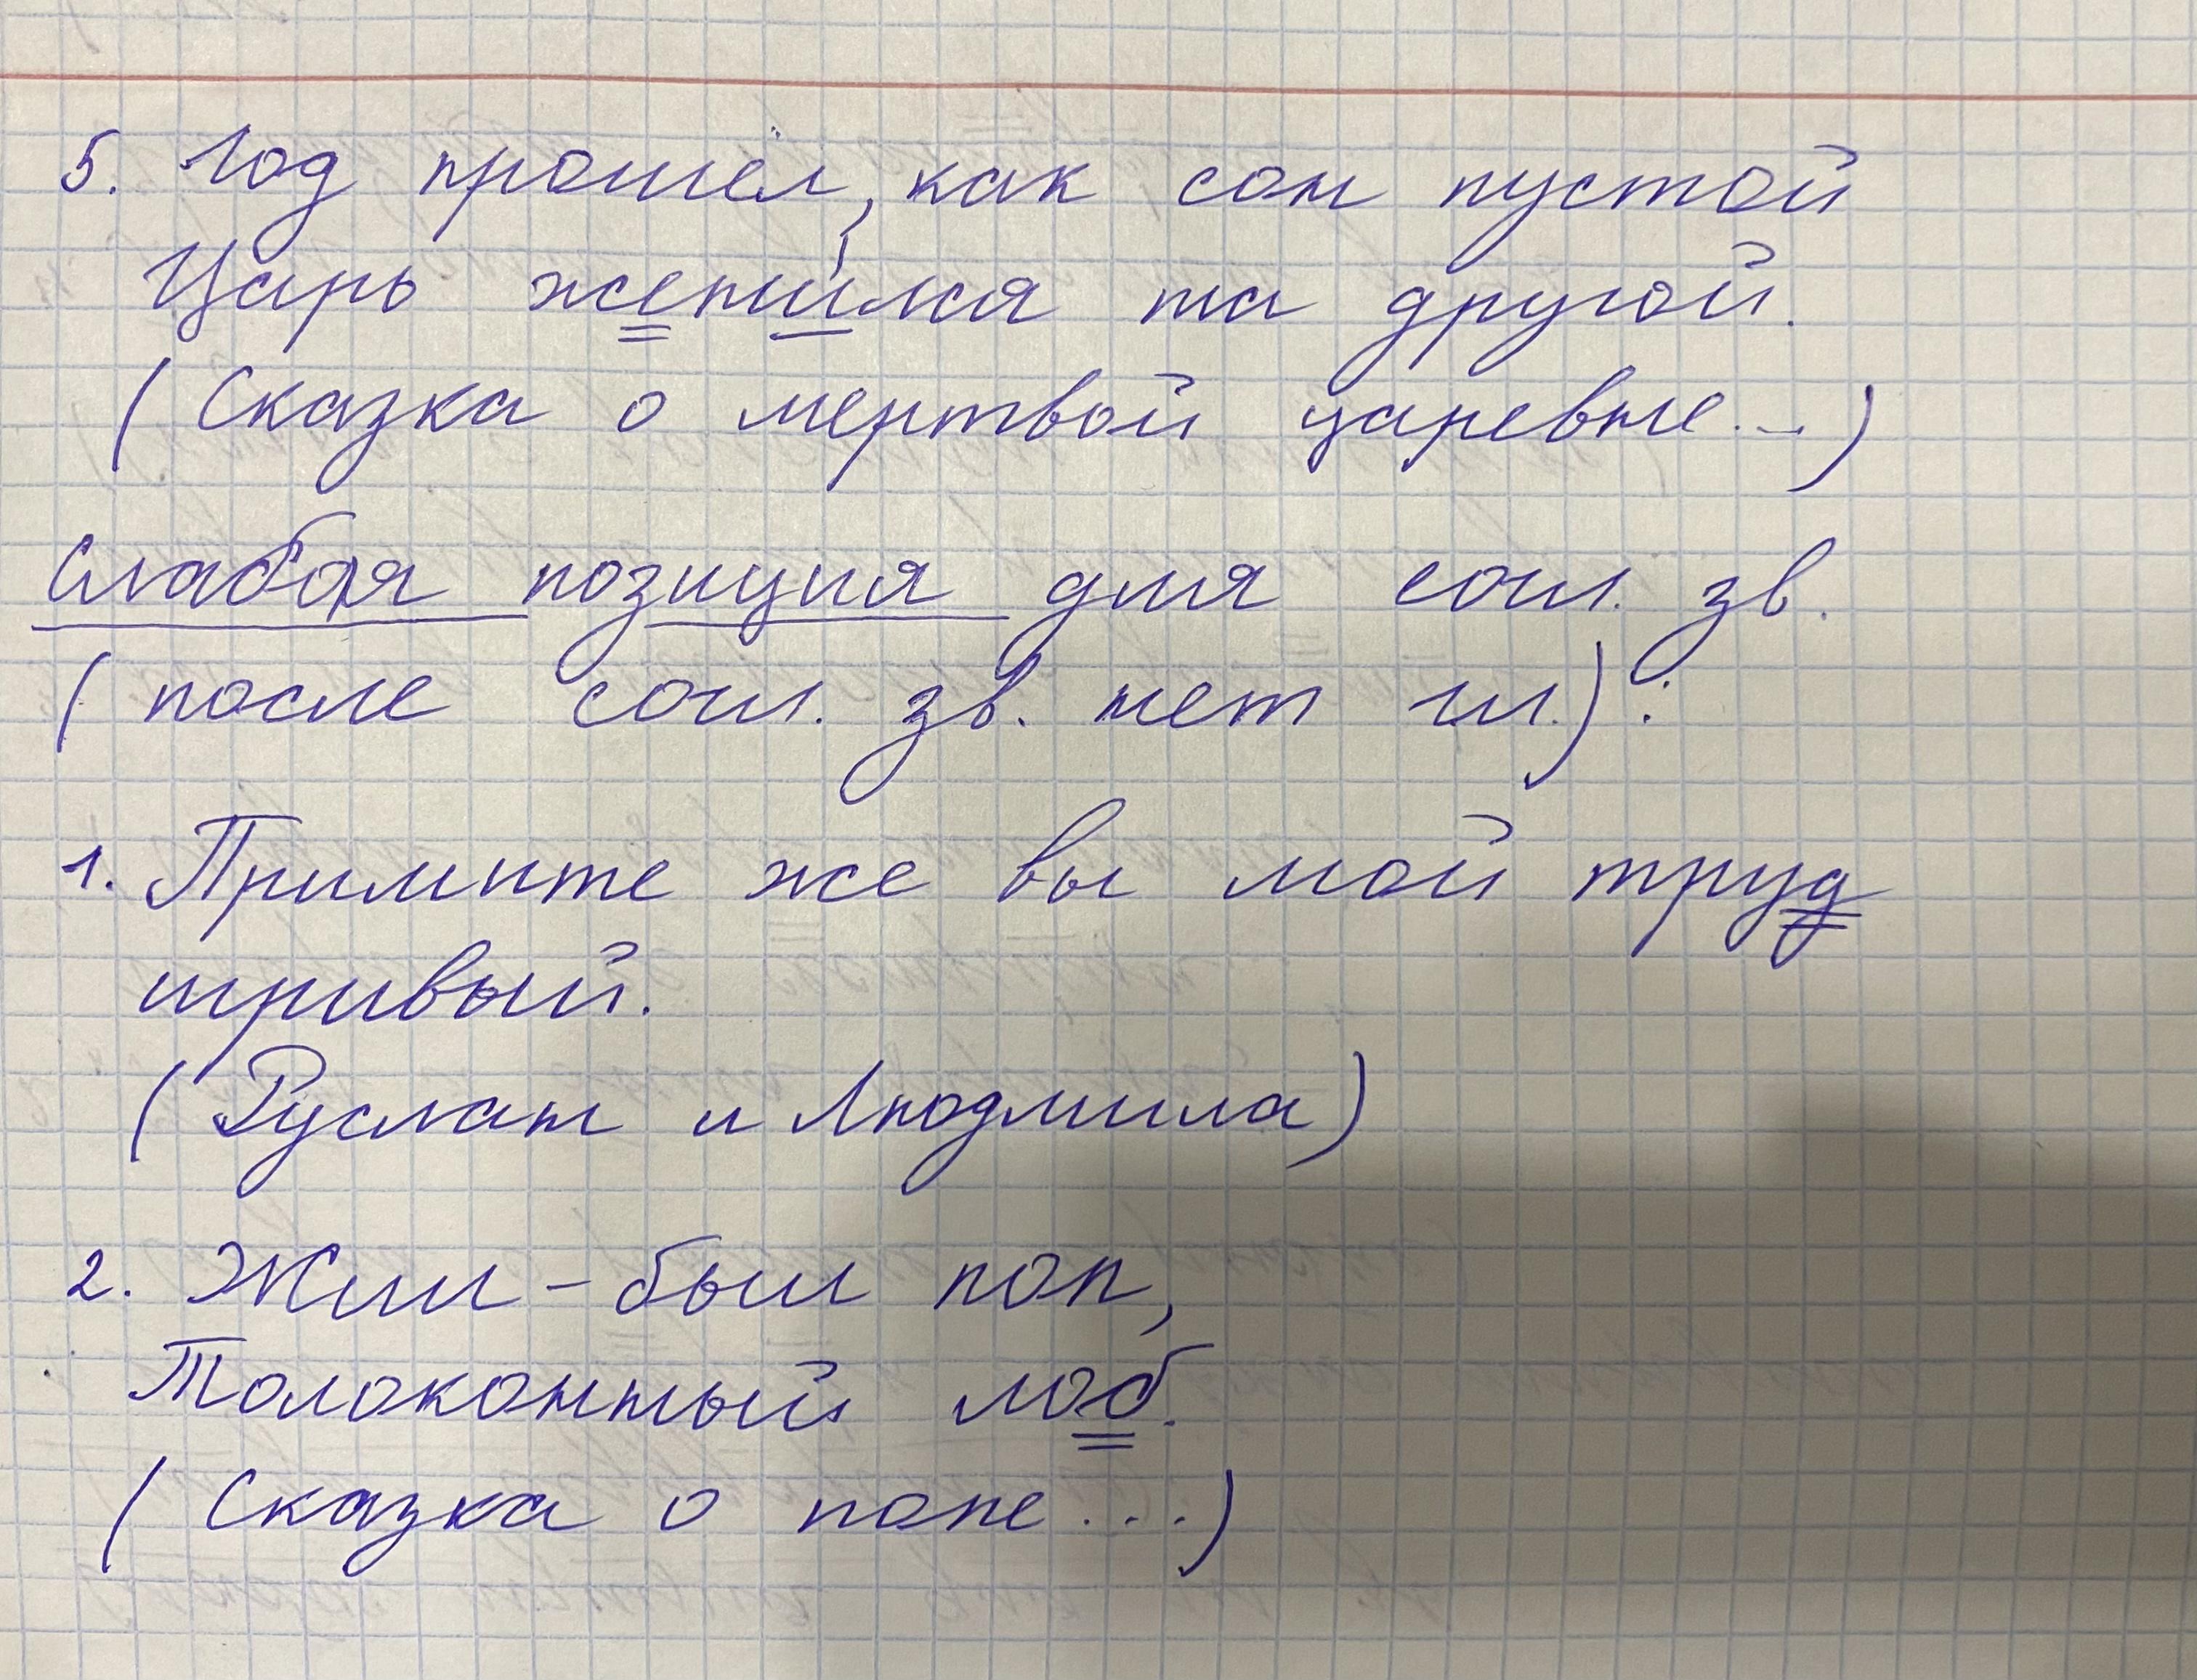 5. Год прошёл, как сон пустой
Царь женился на другой.
(Сказка о мертвой царевне...)
Слабая позиция для согл. зв.
(после согл. зв. нет гл.):
1. Примите же вы мой труд
игривый.
(Руслан и Людмила)
2. Жил-был поп,
Толоконный лоб.
(Сказка о попе...)